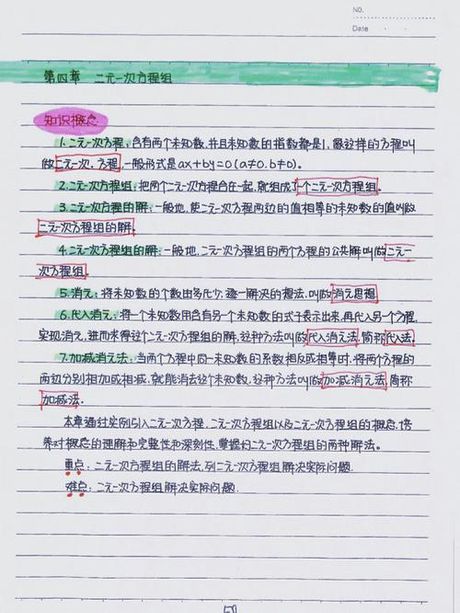 No.
Date
第四章 二元一次方程组
知识概念
1.二元一次方程:含有两个未知数,并且未知数的指数都是1,像这样的方程叫
做二元一次方程,一般形式是ax+by=0(a≠0,b≠0).
2.二元一次方程组:把两个二元一次方程合在一起,就组成了一个二元一次方程组.
3.二元一次方程的解:一般地,使二元一次方程两边的值相等的未知数的值叫做
二元一次方程组的解.
4.二元一次方程组的解:一般地,二元一次方程组的两个方程的公共解叫做二元一
次方程组.
5.消元:将未知数的个数由多化少,逐一解决的想法,叫做消元思想.
6.代入消元:将一个未知数用含有另一个未知数的式子表示出来,再代入另一个方程,
实现消元,进而求得这个二元一次方程组的解,这种方法叫做代入消元法,简称代入法.
7.加减消元法:当两个方程中同一未知数的系数相反或相等时,将两个方程的
两边分别相加或相减,就能消去这个未知数,这种方法叫做加减消元法,简称
加减法.
本章通过实例引入二元一次方程,二元一次方程组以及二元一次方程组的概念,培
养对概念的理解和完整性和深刻性,掌握好二元一次方程组的两种解法.
重点:二元一次方程组的解法,列二元一次方程组解决实际问题.
难点:二元一次方程组解决实际问题.